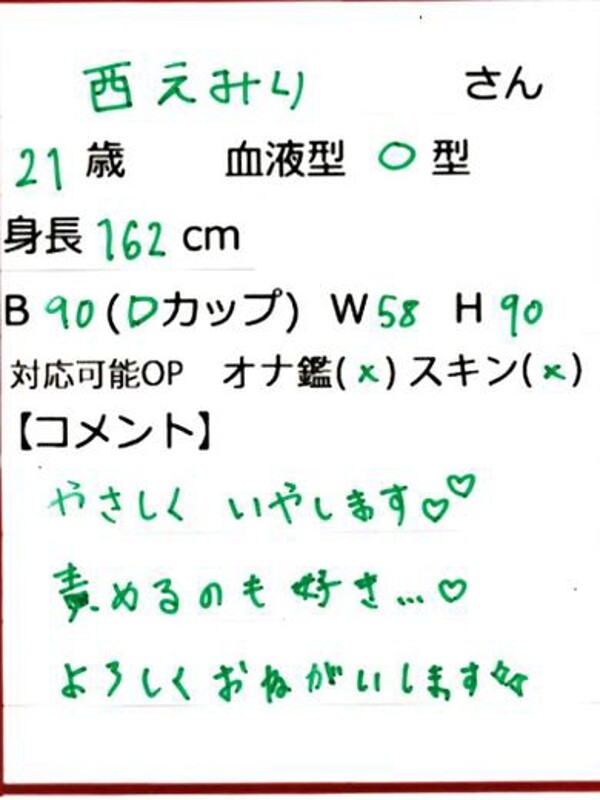 西えみり さん
21 歳 血液型 O 型
身長 162 cm
B 90 (Dカップ) W 58 H 90
対応可能OP オナ鑑(×) スキン(×)
【コメント】
やさしく いやします♡♡
責めるのも好き…♡
よろしくおねがいします☆☆